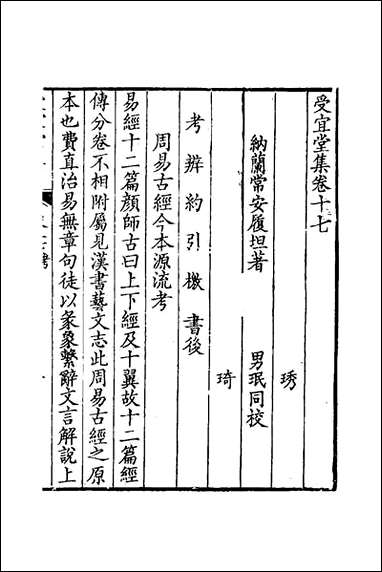 受宜堂集卷十七
琇
納蘭常安履坦著 男珉同校
琦
考 辨 約 引 檄 書後
周易古經今本源流考
易經十二篇顏師古曰上下經及十翼故十二篇經
傳分卷不相附屬見漢書藝文志此周易古經之原
本也費直治易無章句徒以彖象繫辭文言解說上